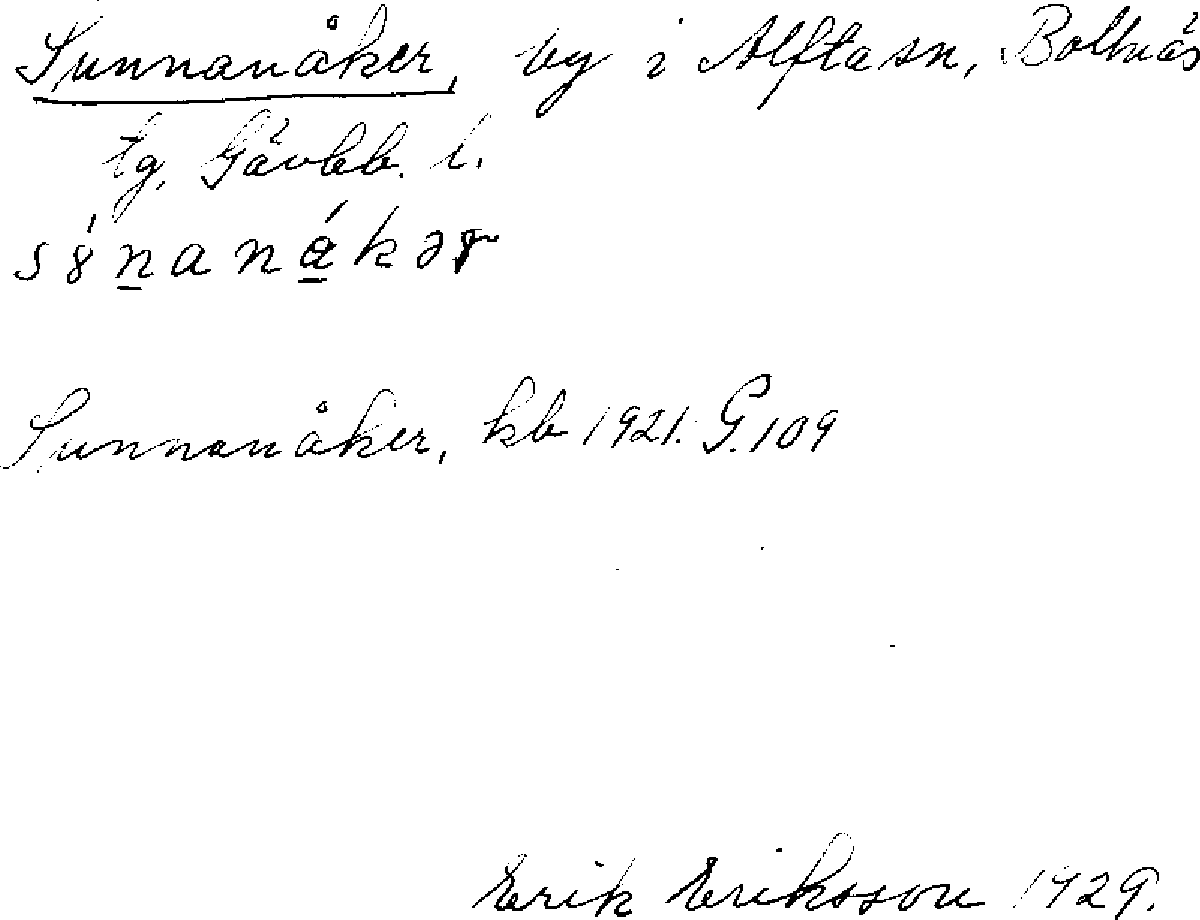 Sunnanåker, by i Alfta sn, Bollnäs
tg, Gävleb. l.
s8́n̲aná̲kər
Sunnanåker, kb 1921. G.109
Erik Eriksson 1929.